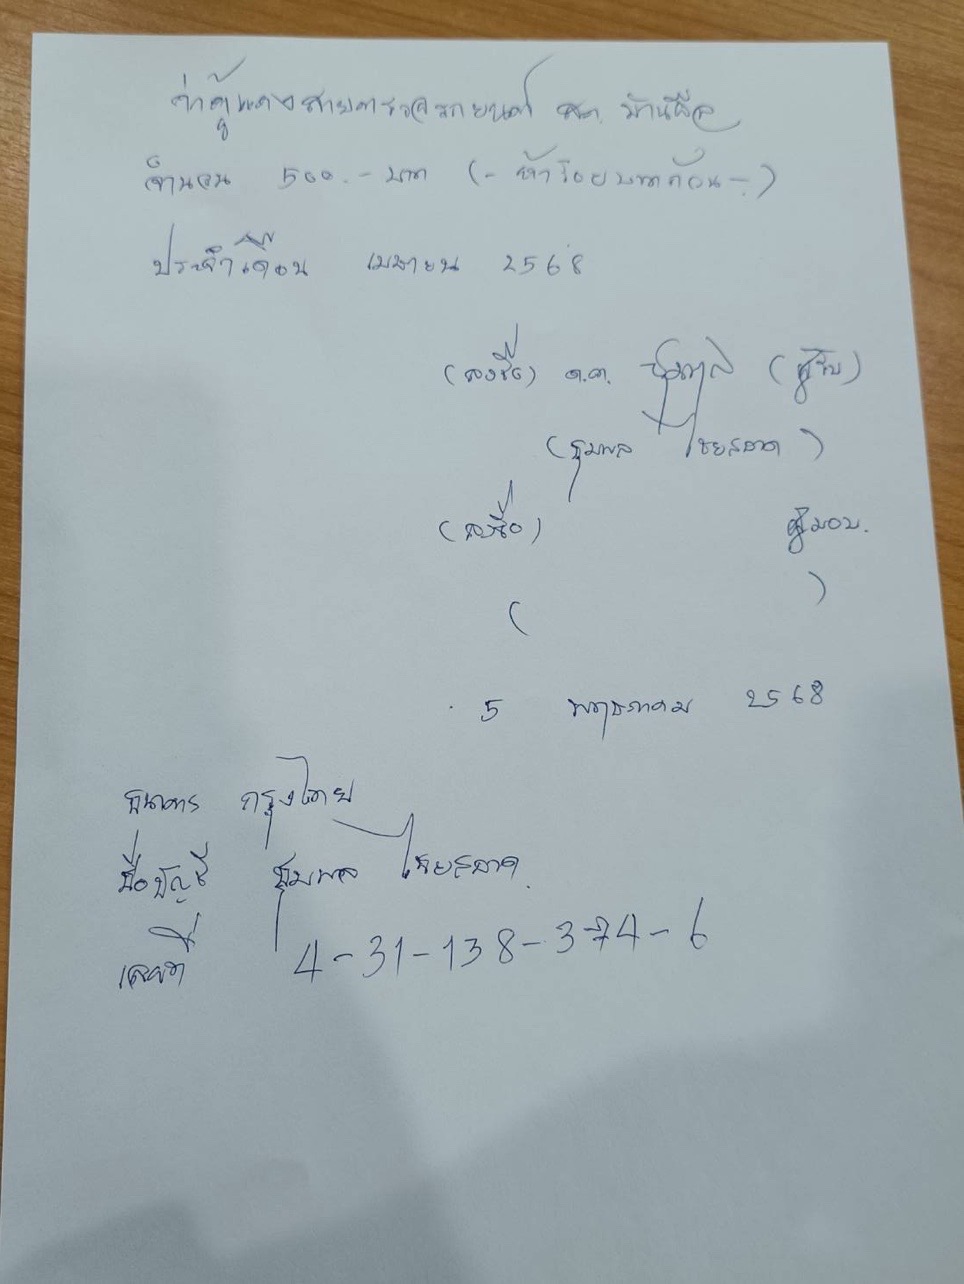 ค่าตู้แดงสายตรวจรถยนต์ สภ. บ้านผือ
จำนวน 500.- บาท (- ห้าร้อยบาทถ้วน -)
ประจำเดือน เมษายน 2568
(ลงชื่อ) ด.ต. (ผู้รับ)
(ชุมพล ไชยสอาด)
(ลงชื่อ) ผู้มอบ.
( )
5 พฤษภาคม 2568
ธนาคาร กรุงไทย
ชื่อบัญชี ชุมพล ไชยสอาด
เลขที่ 4-31-138-374-6